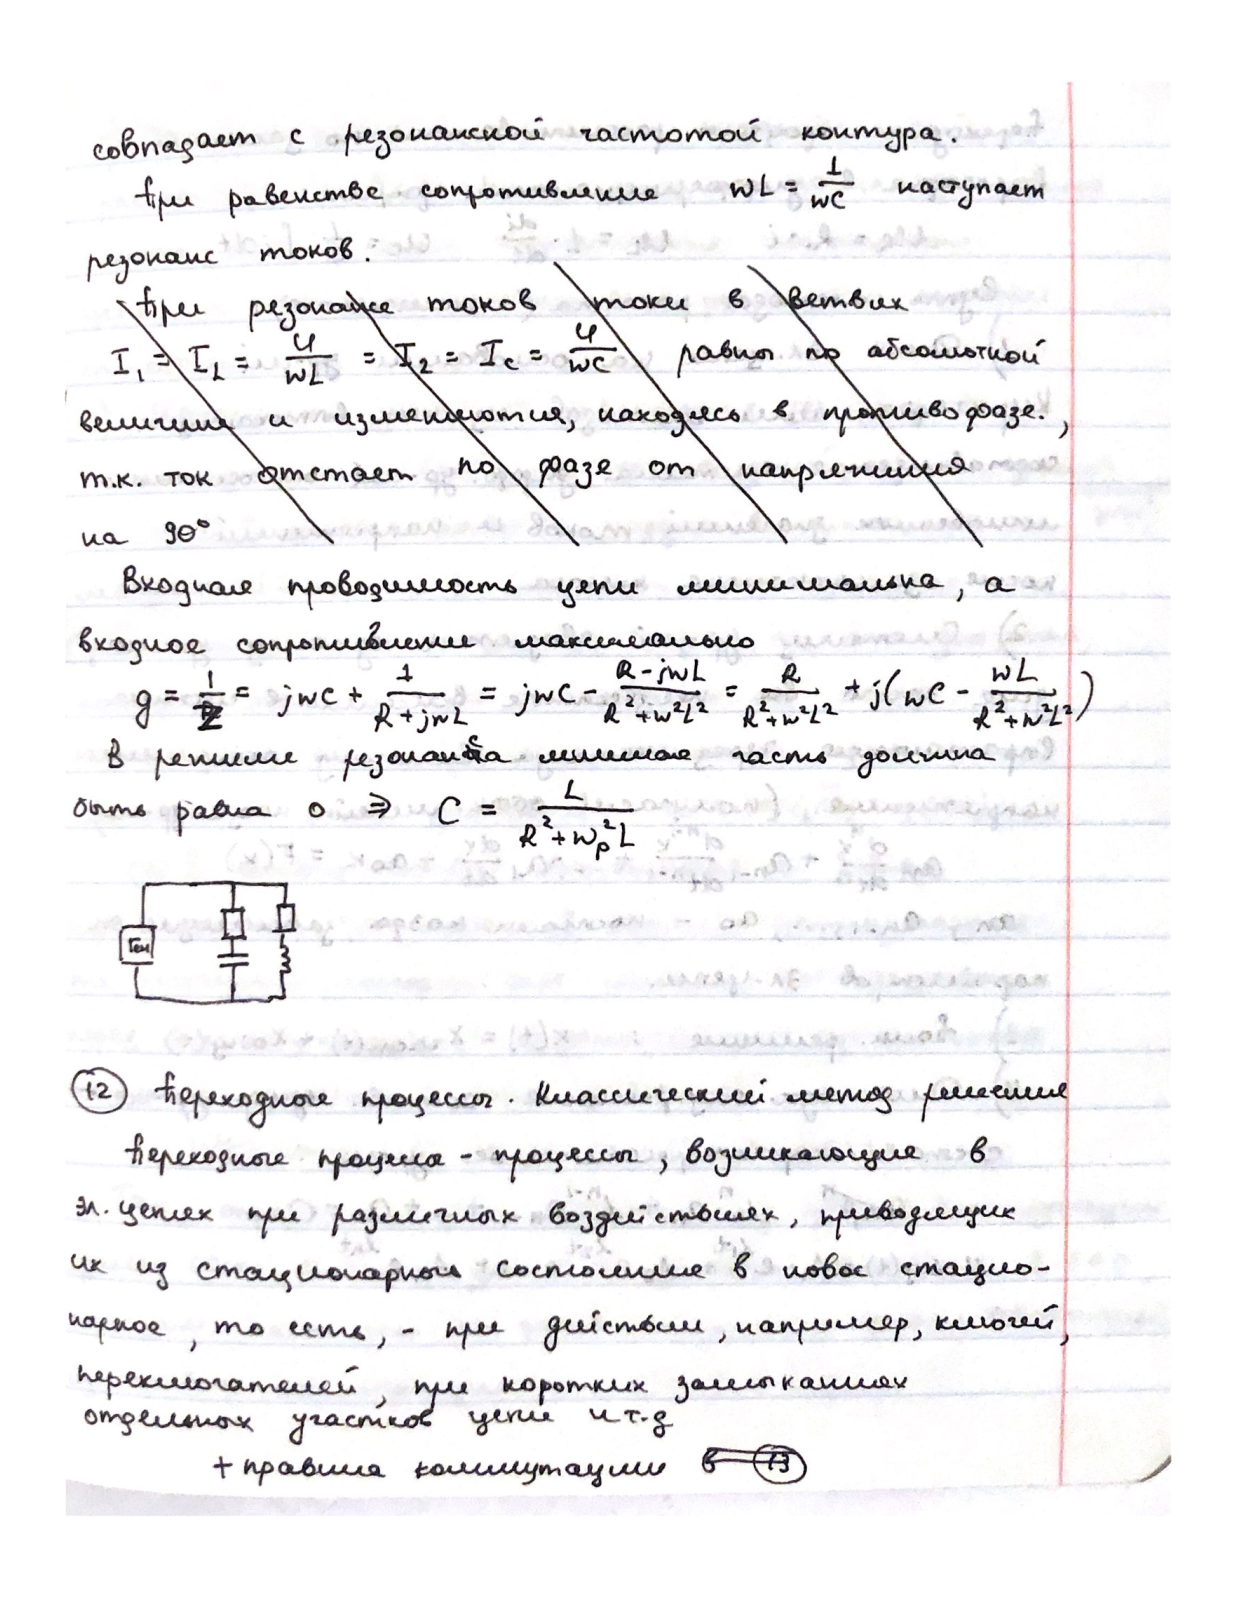 совпадает с резонанской частотой контура.
При равенстве сопротивление wL = 1/wC наступает
резонанс токов.
При резонансе токов токи в ветвях
I₁ = I_L = U/wL = I₂ = I_C = U/wC равны по абсолютной
величине и изменяются, находясь в противофазе.,
т.к. ток отстает по фазе от напряжения
на 90°
Входная проводимость цепи минимальна, а
входное сопротивление максимально
g = 1/Z = jwC + 1/(R+jwL) = jwC - (R-jwL)/(R²+w²L²) = R/(R²+w²L²) + j(wC - wL/(R²+w²L²))
В режиме резонанса мнимая часть должна
быть равна 0 ⇒ C = L/(R²+w_p²L)
Ген
12 Переходные процессы. Классический метод решения
Переходные процесса - процессы, возникающие в
эл. цепях при различных воздействиях, приводящих
их из стационарного состояние в новое стацио-
нарное, то есть, - при действии, например, ключей,
переключателей, при коротких замыканиях
отдельных участков цепи и т.д
+ правила коммутации в 13